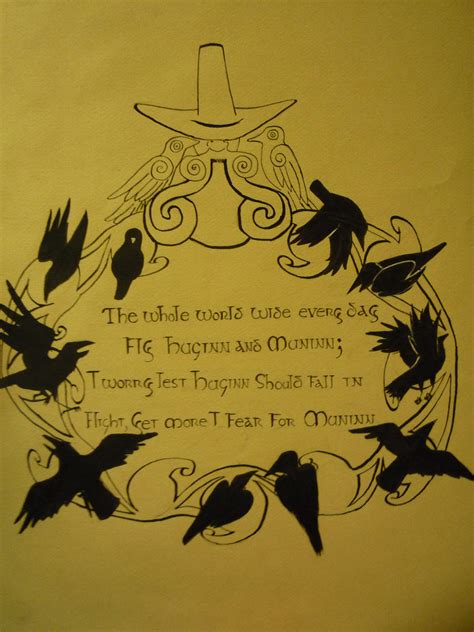 The whole world wide every day
Fly Huginn and Muninn;
I worry lest Huginn Should fall in
flight, yet more I fear for Muninn